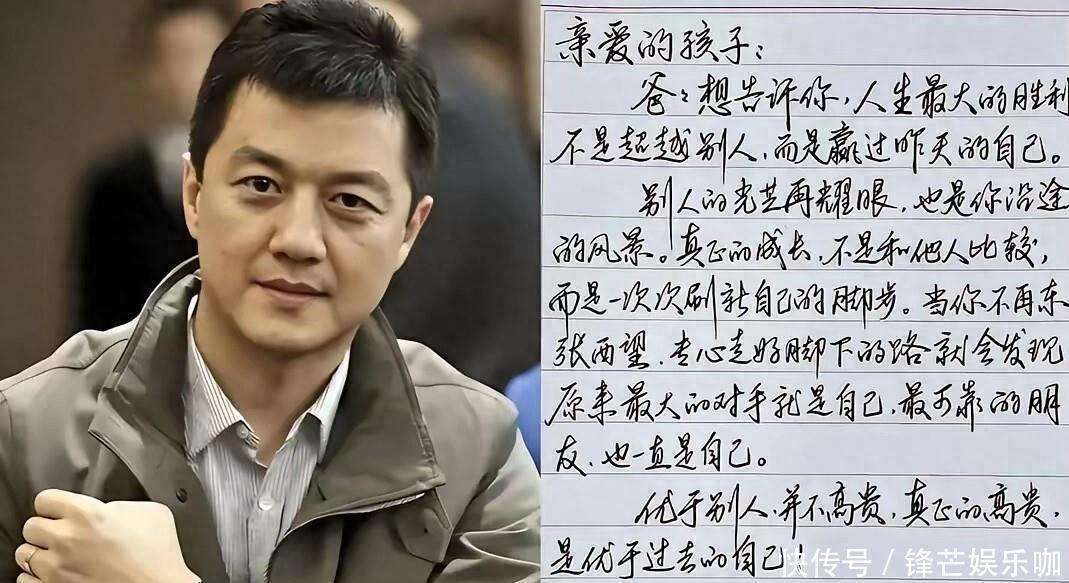 亲爱的孩子：
爸々想告诉你，人生最大的胜利
不是超越别人，而是赢过昨天的自己。
别人的光芒再耀眼，也是你沿途
的风景。真正的成长，不是和他人比较，
而是一次次刷新自己的脚步。当你不再东
张西望、专心走好脚下的路就会发现
原来最大的对手就是自己，最可靠的朋
友、也一直是自己。
优于别人、并不高贵，真正的高贵，
是优于过去的自己！
快传号 / 锋芒娱乐咖